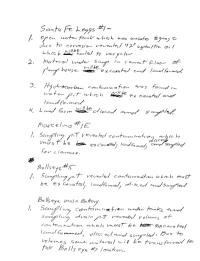 Santa Fe Leggs #1 -
1. Open water tank which was under
due to corrosion revealed
which needed to
2. Natural under sump in cement floor of
pumphouse excavated and landfarmed
3. Hydrocarbon contamination was found in
water pit which excavated and
landfarmed
4. Land farm disced and sampled
#1E
1. Sampling pit revealed contamination which
must be excavated, landfarmed, disced
for closure.
Bullseye #1
1. Sampling pit revealed contamination which must
be excavated, landfarmed, disced and sampled
Bullseye Main Battery
Sampling contamination under tanks and
sampling drain pit revealed volumes of
contamination which must be excavated
landfarmed, disced and sampled. Due to
volumes some material will be transferred to
the Bullseye #1 location.